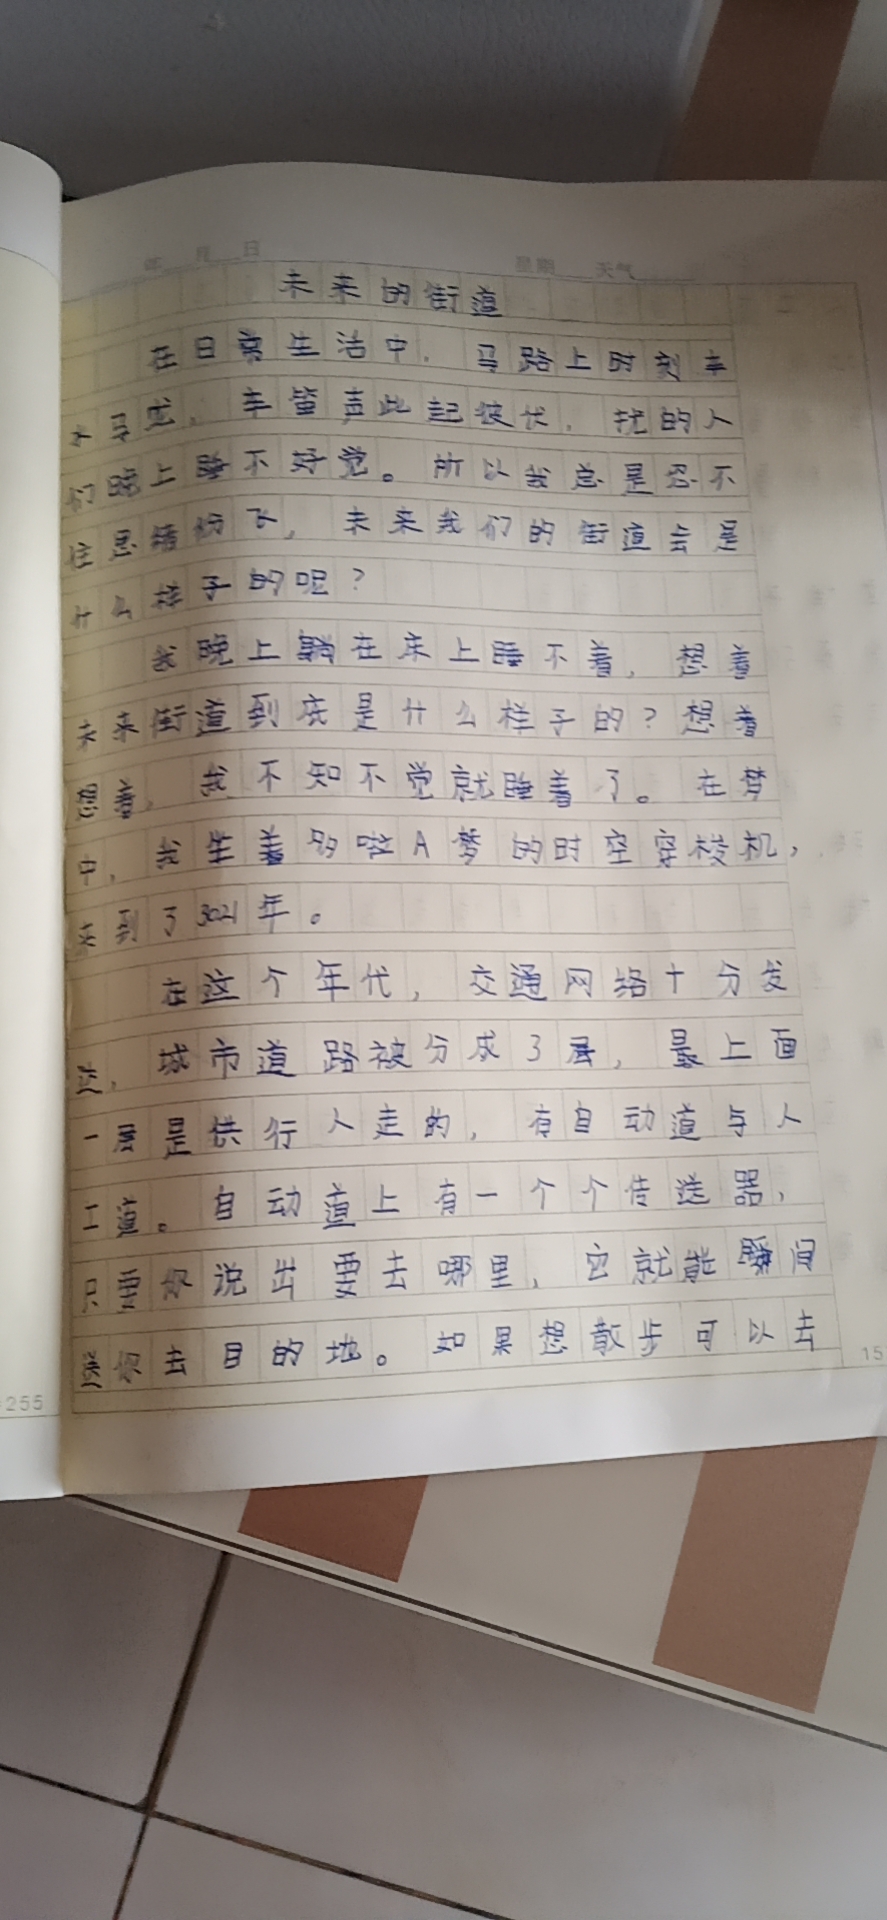 年 月 日 星期 天气
未来的街道
在日常生活中,马路上时刻车
水马龙,车笛声此起彼伏,扰的人
们晚上睡不好觉。所以我总是忍不
住思绪纷飞,未来我们的街道会是
什么样子的呢?
我晚上躺在床上睡不着,想着
未来街道到底是什么样子的?想着
想着,我不知不觉就睡着了。在梦
中,我坐着哆啦A梦的时空穿梭机,
来到了3021年。
在这个年代,交通网络十分发
达,城市道路被分成了3层,最上面
一层是供行人走的,有自动道与人
工道。自动道上有一个个传送器,
只要你说出要去哪里,它就能瞬间
送你去目的地。如果想散步可以去
255
15